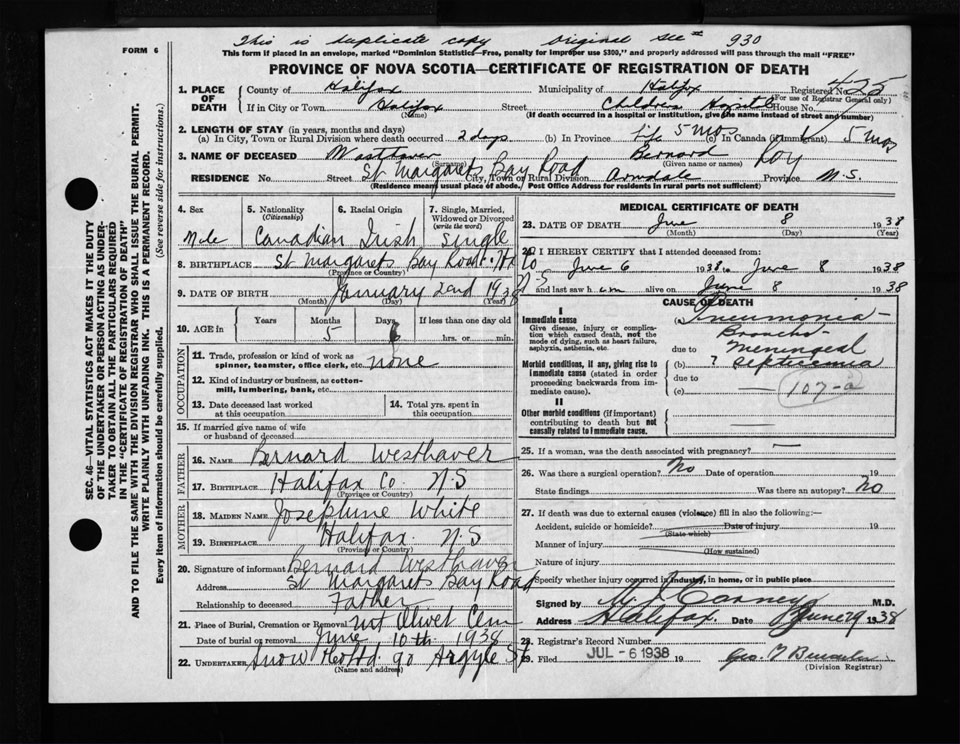 This is duplicate copy Original see # 930
FORM 6
This form if placed in an envelope, marked "Dominion Statistics—Free, penalty for improper use $300," and properly addressed will pass through the mail "FREE"
PROVINCE OF NOVA SCOTIA—CERTIFICATE OF REGISTRATION OF DEATH
1. PLACE OF DEATH
County of Halifax Municipality of Halifax Registered No. 425
(For use of Registrar General only)
If in City or Town Halifax Street Childrens Hospital House No.
(Name) (If death occurred in a hospital or institution, give the name instead of street and number)
2. LENGTH OF STAY (in years, months and days)
(a) In City, Town or Rural Division where death occurred 2 days (b) In Province life 5 mos (c) In Canada (if immigrant) 5 mos
3. NAME OF DECEASED Westhaver Bernard Roy
(Surname) (Given name or names)
RESIDENCE No. Street St Margarets Bay Road City, Town or Rural Division Armdale Province N.S.
(Residence means usual place of abode. Post Office Address for residents in rural parts not sufficient)
4. Sex
Male
5. Nationality
(Citizenship)
Canadian
6. Racial Origin
Irish
7. Single, Married, Widowed or Divorced
(write the word)
Single
8. BIRTHPLACE St Margarets Bay Road Hx Co N S
(Province or Country)
9. DATE OF BIRTH January 2nd 1938
(Month) (Day) (Year)
10. AGE in
Years Months Days If less than one day old
5 6 hrs. or min.
OCCUPATION
11. Trade, profession or kind of work as spinner, teamster, office clerk, etc. none
12. Kind of industry or business, as cotton-mill, lumbering, bank, etc.
13. Date deceased last worked at this occupation
14. Total yrs. spent in this occupation
15. If married give name of wife or husband of deceased
FATHER
16. NAME Bernard Westhaver
17. BIRTHPLACE Halifax Co. N.S
(Province or Country)
MOTHER
18. MAIDEN NAME Josephine White
19. BIRTHPLACE Halifax N.S
(Province or Country)
20. Signature of informant Bernard Westhaver
Address St Margarets Bay Road
Relationship to deceased Father
21. Place of Burial, Cremation or Removal Mt Olivet Cem
Date of burial or removal June 10th 1938
22. UNDERTAKER Snow & Co Ltd 90 Argyle St
(Name and address)
MEDICAL CERTIFICATE OF DEATH
23. DATE OF DEATH June 8 1938
(Month) (Day) (Year)
24. I HEREBY CERTIFY that I attended deceased from:
June 6 1938 to June 8 1938
and last saw him alive on June 8 1938
CAUSE OF DEATH
I
Immediate cause
Give disease, injury or complication which caused death, not the mode of dying, such as heart failure, asphyxia, asthenia, etc.
(a) Pneumonia—
Broncho-
due to Meningeal
Morbid conditions, if any, giving rise to immediate cause (stated in order proceeding backwards from immediate cause).
(b) ? Septicemia
due to
(c) 107-a
II
Other morbid conditions (if important) contributing to death but not causally related to immediate cause.
25. If a woman, was the death associated with pregnancy?
26. Was there a surgical operation? No Date of operation 19
State findings Was there an autopsy? No
27. If death was due to external causes (violence) fill in also the following:—
Accident, suicide or homicide? Date of injury 19
(State which)
Manner of injury
(How sustained)
Nature of injury
Specify whether injury occurred in industry, in home, or in public place
Signed by M.D.
Address Halifax. Date June 29 1938
28. Registrar's Record Number
29. Filed JUL - 6 1938 19
(Division Registrar)
SEC. 46—VITAL STATISTICS ACT MAKES IT THE DUTY
OF THE UNDERTAKER OR PERSON ACTING AS UNDER-
TAKER TO OBTAIN ALL THE PARTICULARS REQUIRED
IN THE "CERTIFICATE OF REGISTRATION OF DEATH"
AND TO FILE THE SAME WITH THE DIVISION REGISTRAR WHO SHALL ISSUE THE BURIAL PERMIT.
WRITE PLAINLY WITH UNFADING INK. THIS IS A PERMANENT RECORD.
Every item of information should be carefully supplied. (See reverse side for instructions.)